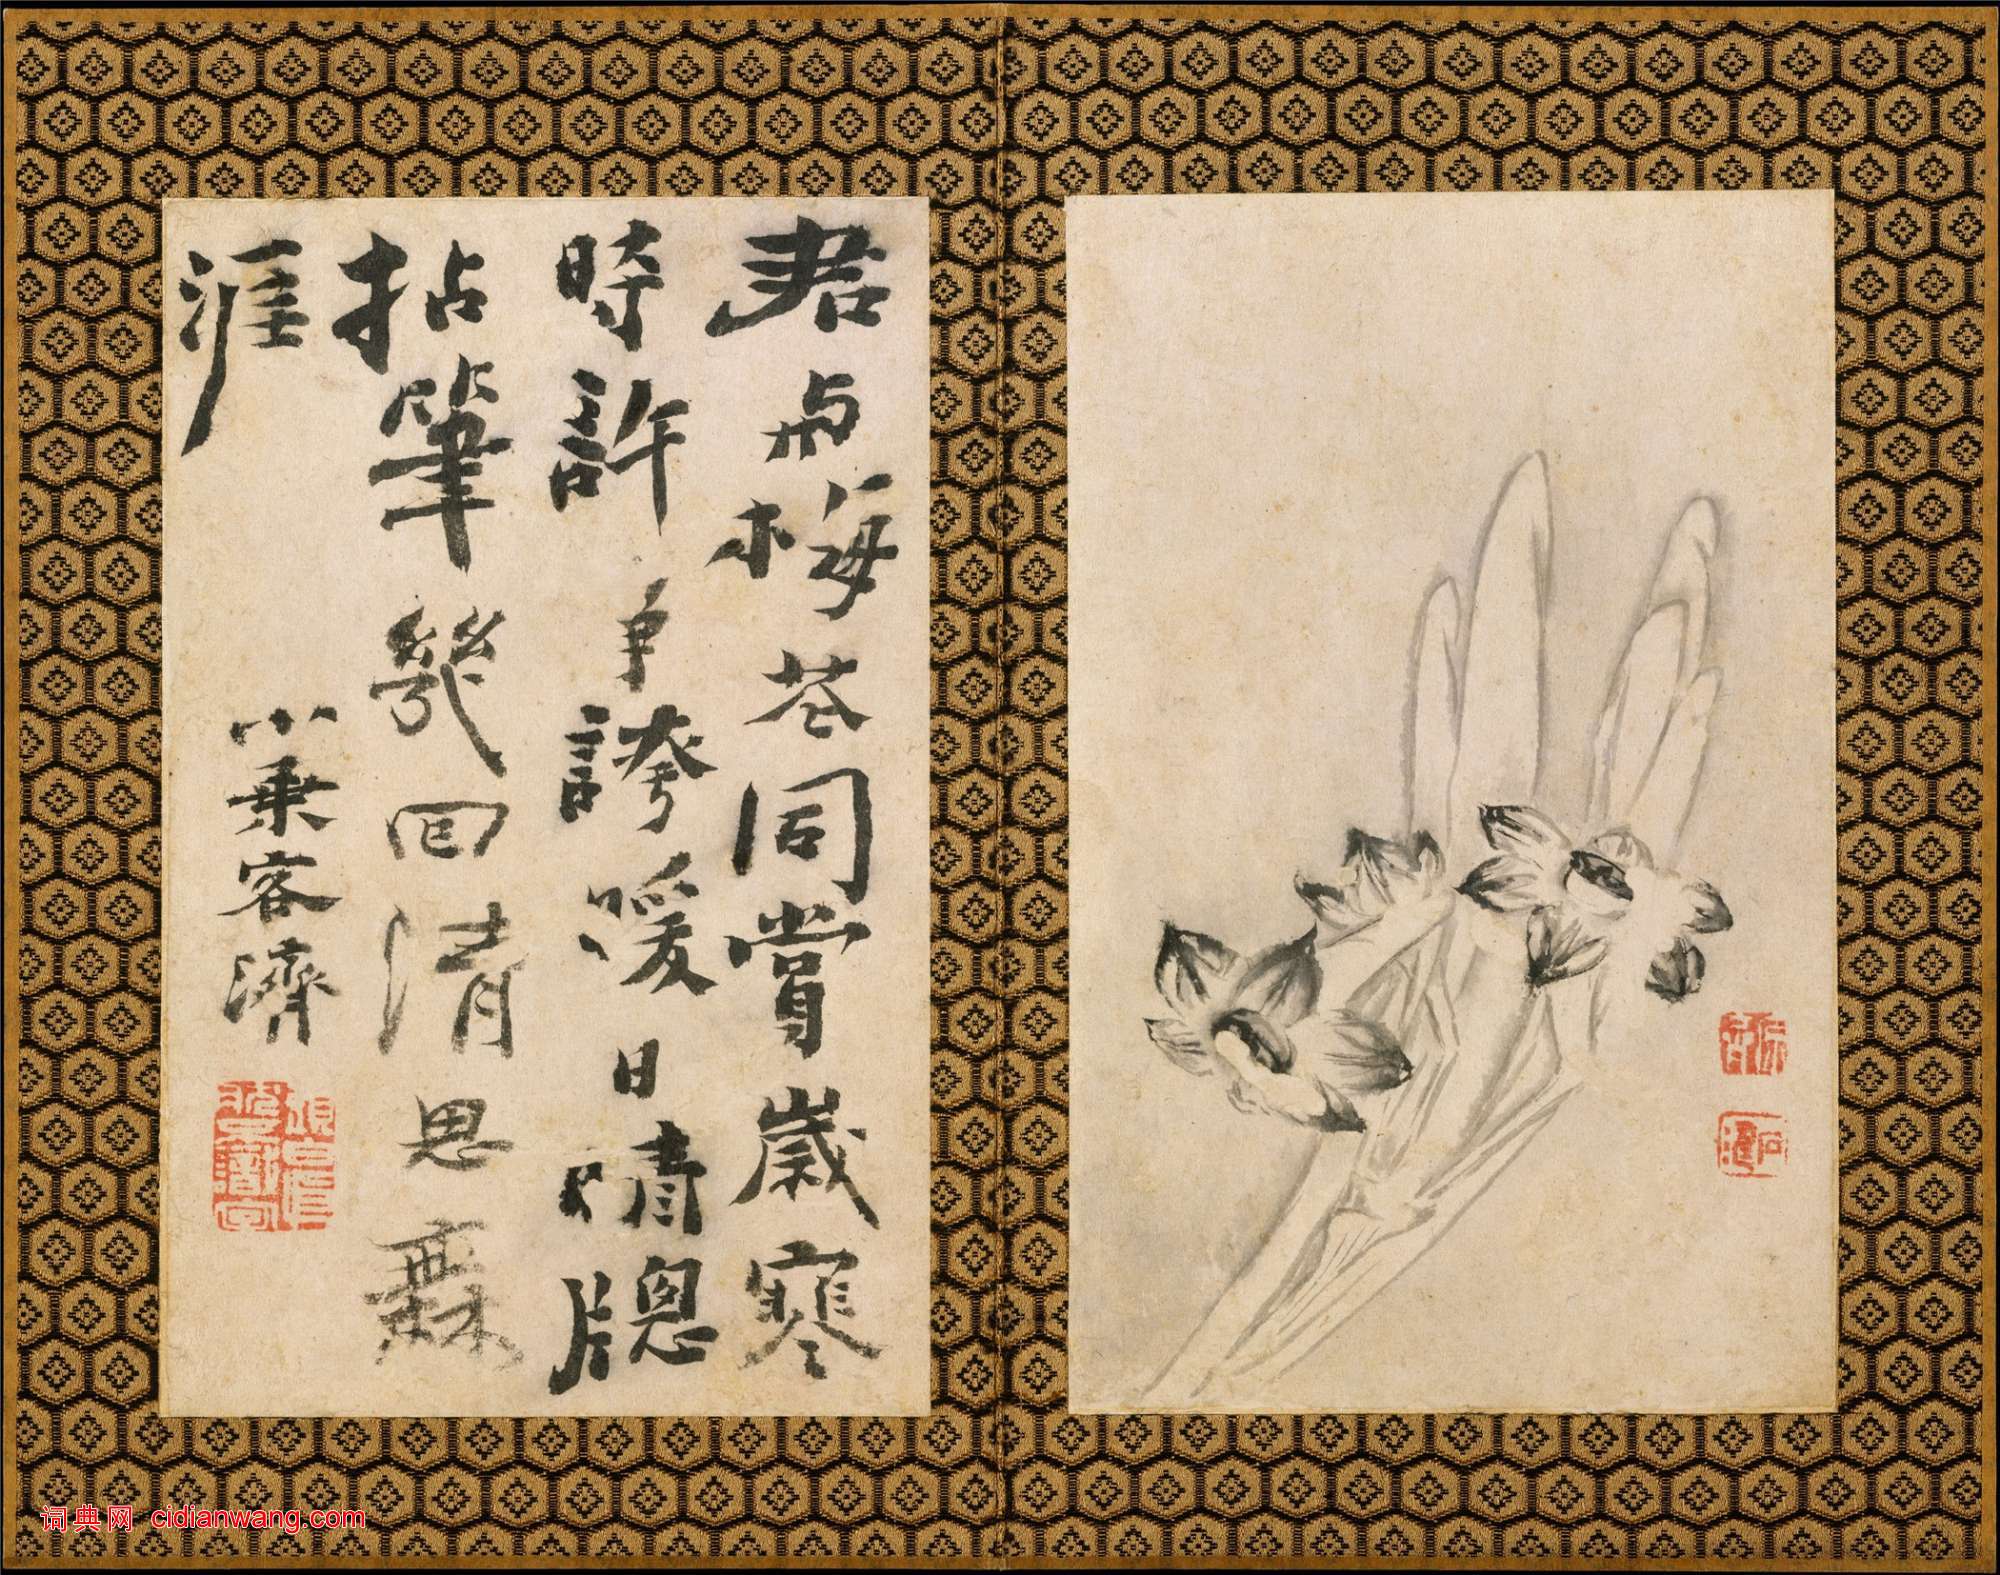 君与梅花同賞歲寒
時許爭誇暖日晴牕
拈筆幾回清思無
涯
小乗客濟
词典网 cidianwang.com